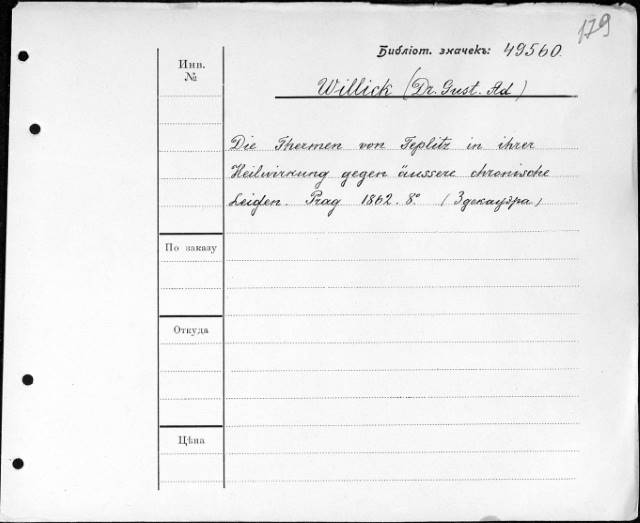 179
Библіот. значекъ: 49560.
Инв.
№
Willick (Dr. Gust. Ad)
Die Thermen von Teplitz in ihrer
Heilwirkung gegen äussere chronische
Leiden. Prag 1862. 8°. (3 декаэра)
По заказу
Откуда
Цѣна